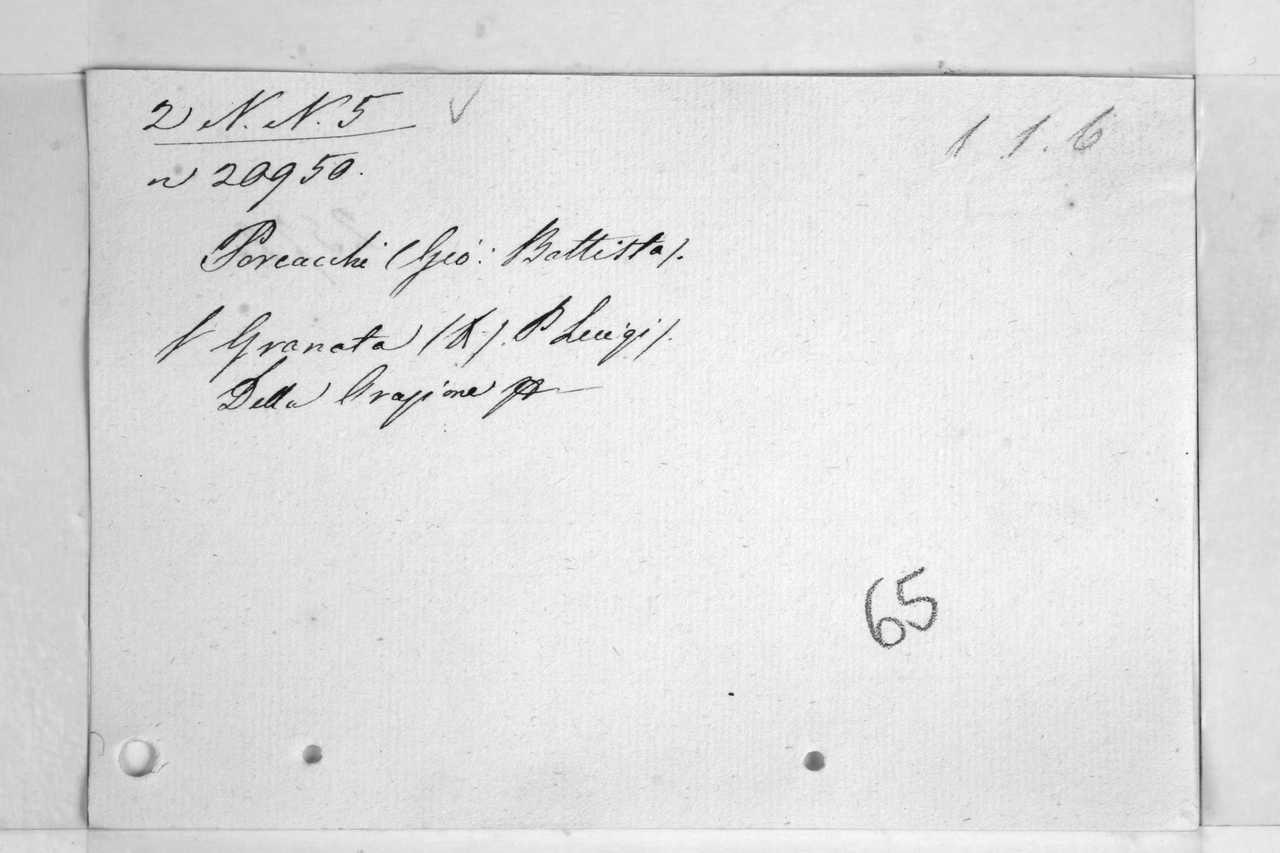 2 N. N. 5
1 1. 6
n 20950.
Porcacchi (Gio: Battista).
V Granata (K). P Luigi).
Della Grazione
65